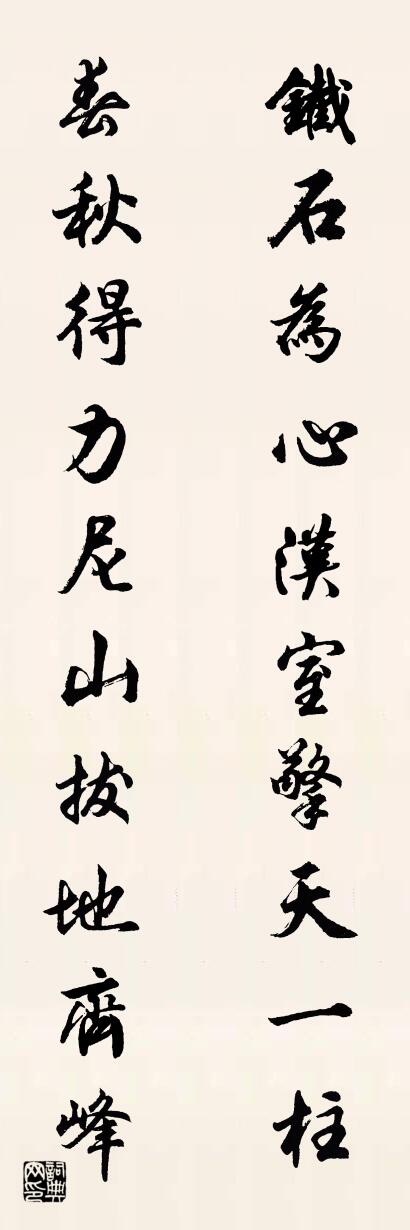 鐵石為心漢室擎天一柱
春秋得力尼山拔地齊峰
詞典网印